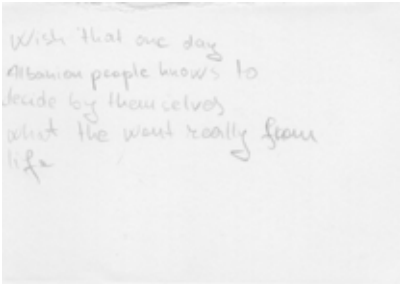 Wish that one day
Albanian people knows to
decide by themselves
what the want really from
life